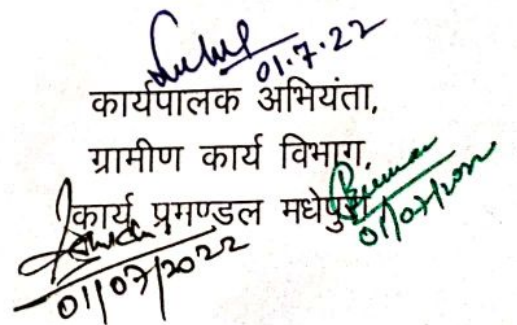 01.7.22
कार्यपालक अभियंता,
ग्रामीण कार्य विभाग,
कार्य प्रमण्डल मधेपुरा
01/07/2022
01/07/2022